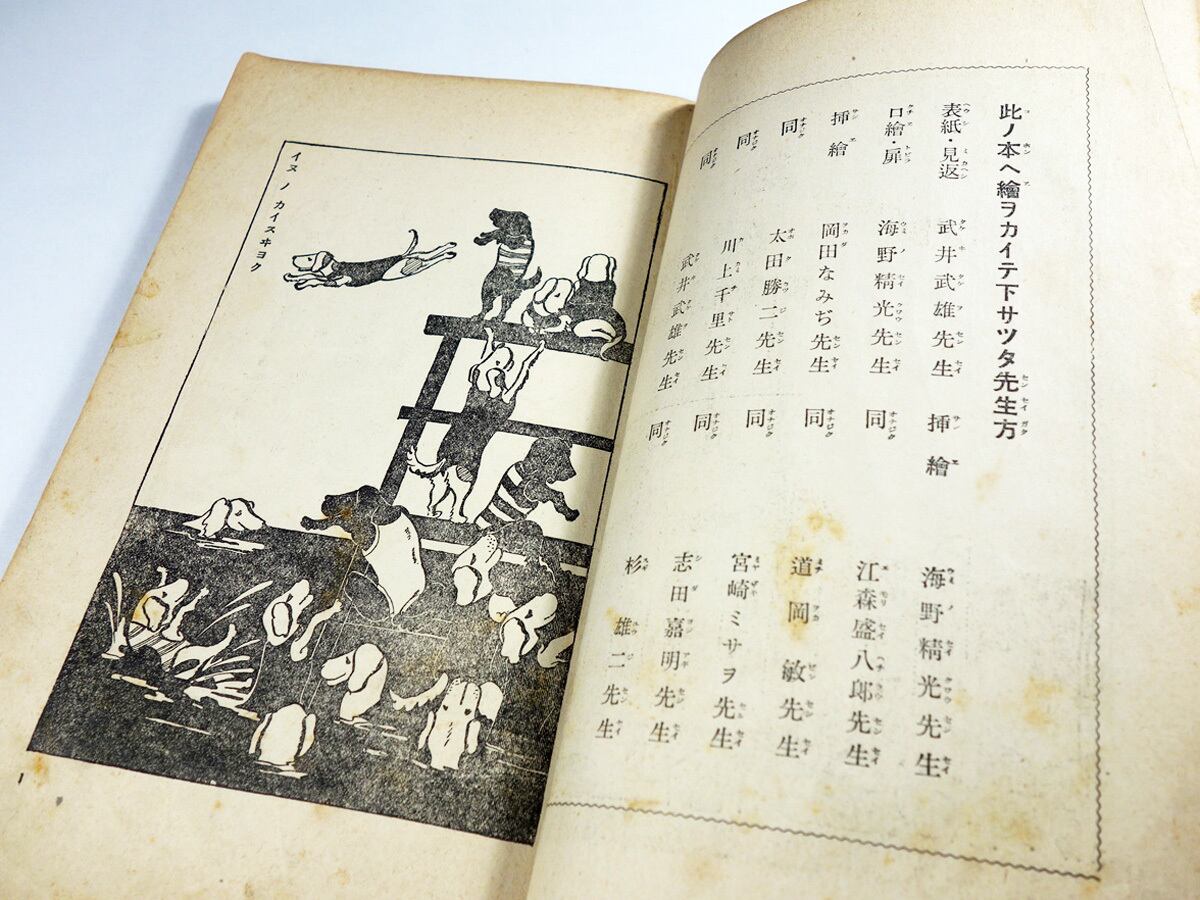 此ノ本ヘ繪ヲカイテ下サツタ先生方
表紙・見返 武井武雄先生
口繪・扉 海野精光先生
挿繪 岡田なみぢ先生
同 太田勝二先生
同 川上千里先生
同 武井武雄先生
挿繪 海野精光先生
同 江森盛八郎先生
同 道岡敏先生
同 宮崎ミサヲ先生
同 志田嘉明先生
同 杉雄二先生
イヌノカイスヰヨク
1